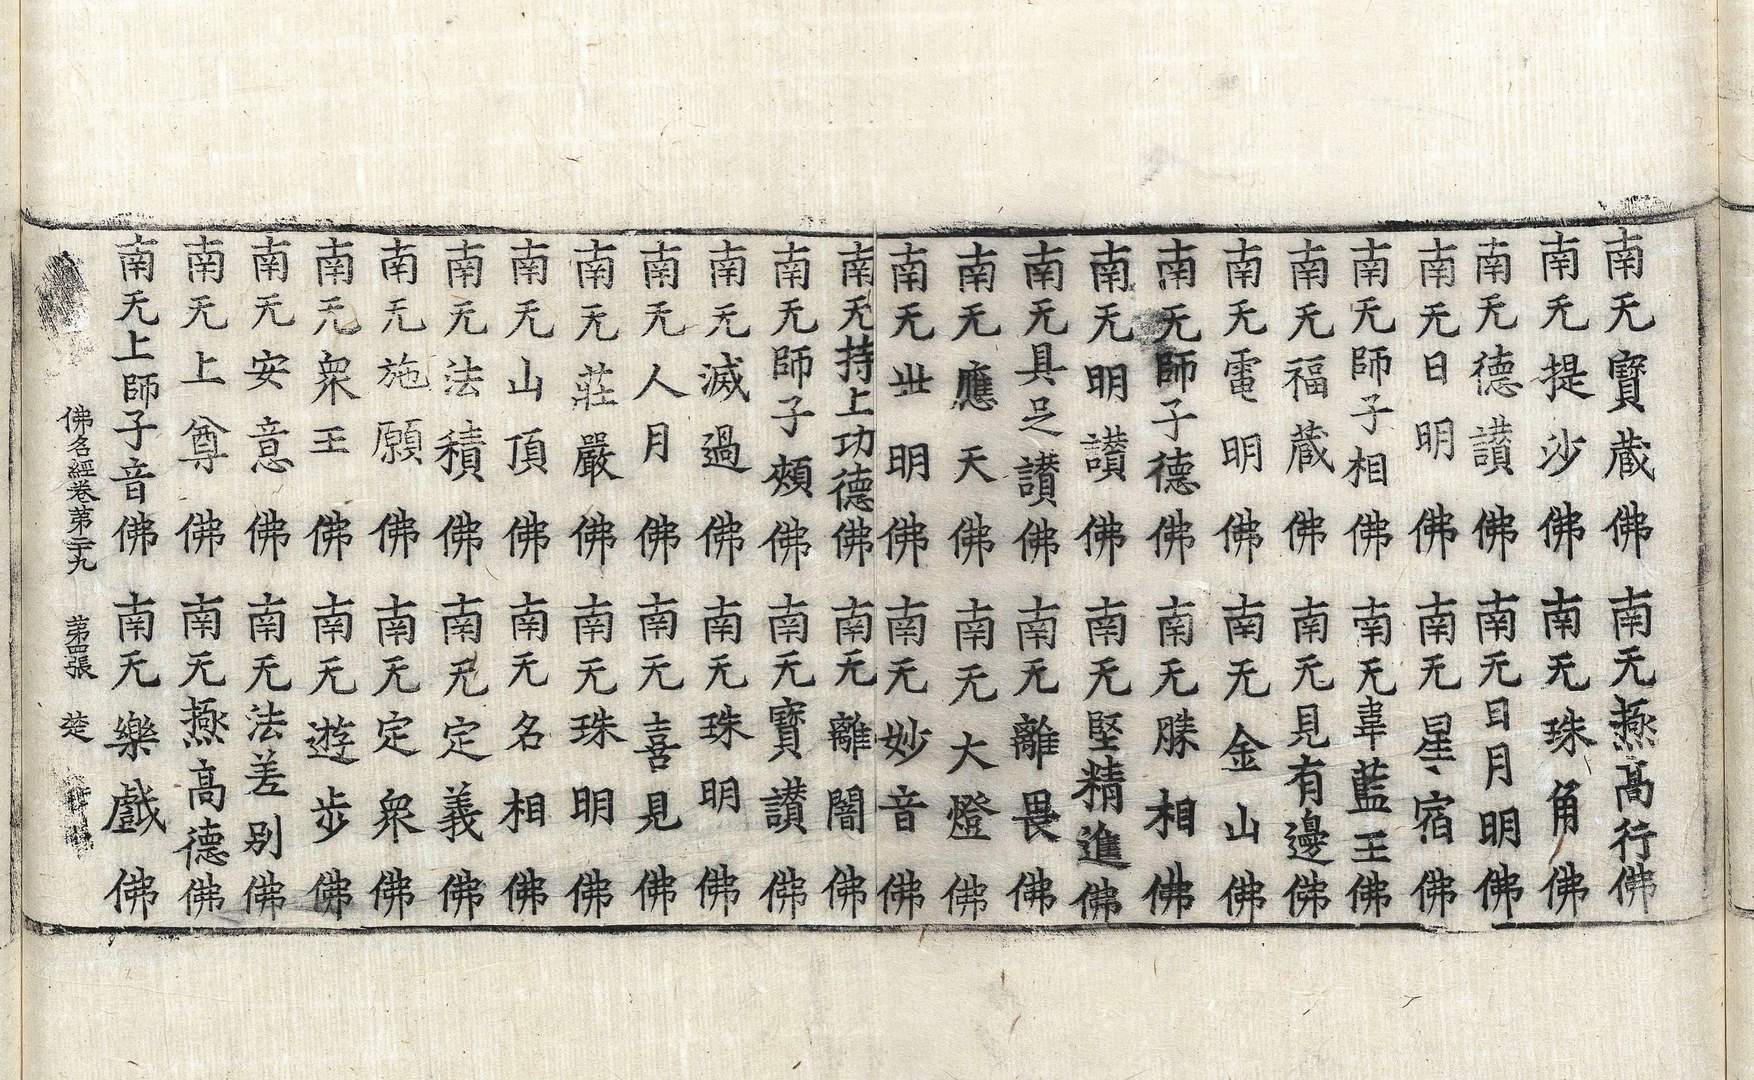 南无寶蔵佛 南无燕高行佛
南无提沙佛 南无珠角佛
南无德讃佛 南无日月明佛
南无日明佛 南无星宿佛
南无師子相佛 南无韋藍王佛
南无福蔵佛 南无見有邊佛
南无電明佛 南无金山佛
南无師子德佛 南无勝相佛
南无明讃佛 南无堅精進佛
南无具足讃佛 南无離畏佛
南无應天佛 南无大燈佛
南无丗明佛 南无妙音佛
南无持上功德佛 南无離闇佛
南无師子頰佛 南无寶讃佛
南无滅過佛 南无珠明佛
南无人月佛 南无喜見佛
南无莊嚴佛 南无珠明佛
南无山頂佛 南无名相佛
南无法積佛 南无定義佛
南无施願佛 南无定衆佛
南无衆王佛 南无遊步佛
南无安意佛 南无法差别佛
南无上尊佛 南无燕高德佛
南无上師子音佛 南无樂戲佛
佛名經卷第二十九 第四張 楚